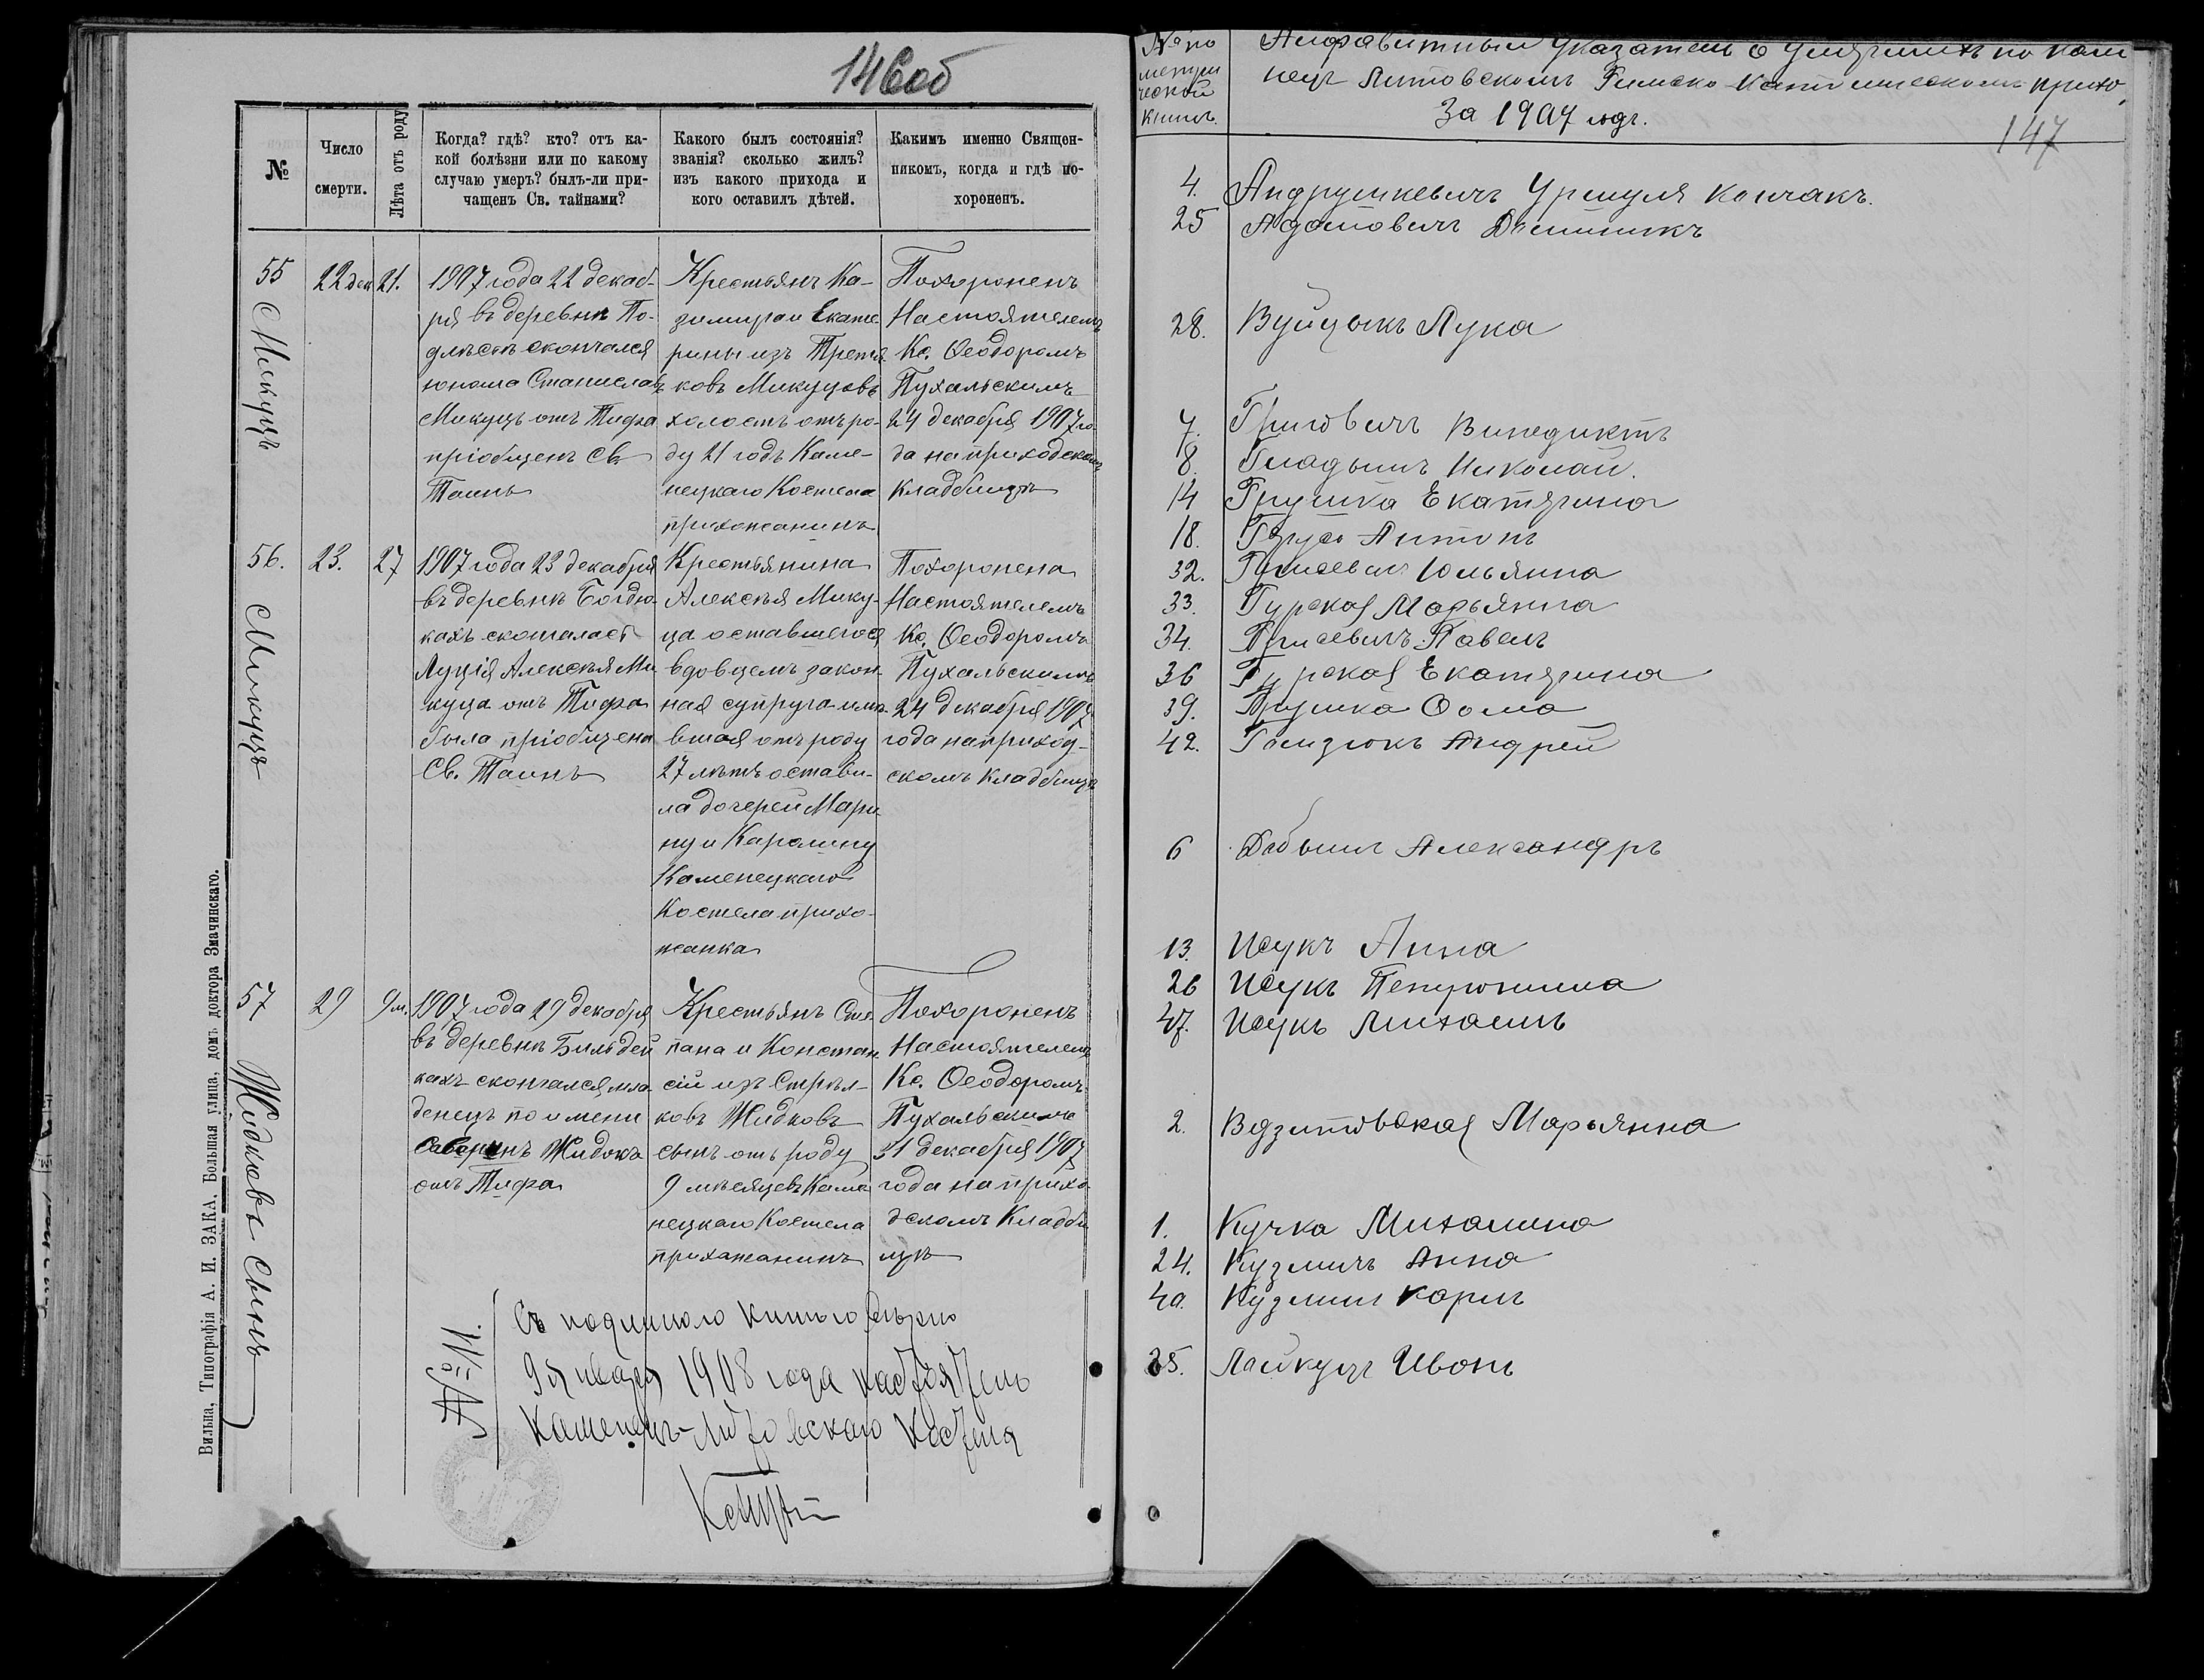 146об
№
Число смерти.
Лѣта отъ роду
Когда? гдѣ? кто? отъ ка-
кой болѣзни или по какому
случаю умеръ? былъ-ли при-
чащенъ Св. тайнами?
Какого былъ состоянія?
званія? сколько жилъ?
изъ какого прихода и
кого оставилъ дѣтей.
Какимъ именно Священ-
никомъ, когда и гдѣ по-
хороненъ.
55
Микуцъ
22 дек
21.
1907 года 22 декаб-
ря въ деревнѣ По-
длѣсьѣ скончался
юноша Станиславъ
Микуцъ отъ Тифа
пріобщенъ Св.
Таинъ
Крестьянъ Ка-
зимира и Екате-
рины изъ Третя-
ковъ Микуцовъ
холостъ отъ ро-
ду 21 годъ Каме-
нецкаго Костела
прихожанинъ
Похороненъ
Настоятелемъ
Кс. Ѳеодоромъ
Пухальскимъ
24 декабря 1907 го-
да на приходскомъ
Кладбищѣ
56.
Микуцъ
23.
27
1907 года 23 декабря
въ деревнѣ Богдю-
кахъ скончалась
Луція Алексѣя Ми-
куца отъ Тифа
была пріобщена
Св. Таинъ
Крестьянина
Алексѣя Мику-
ца оставшегося
вдовцемъ закон-
ная супруга имѣ-
вшая отъ роду
27 лѣтъ остави-
ла дочерей Мари-
ну и Каролину
Каменецкаго
Костела прихо-
жанка
Похоронена
Настоятелемъ
Кс. Ѳеодоромъ
Пухальскимъ
24 декабря 1907
года на приход-
скомъ Кладбищѣ
57
Жидковъ сынъ
29
9 м.
1907 года 29 декабря
въ деревнѣ Бильдей
кахъ скончался мла-
денецъ по имени
Северинъ Жидокъ
отъ Тифа
Крестьянъ Сте-
пана и Констан-
сіи изъ Стрѣл-
ковъ Жидковъ
сынъ отъ роду
9 мѣсяцевъ Каме-
нецкаго Костела
прихожанинъ
Похороненъ
Настоятелемъ
Кс. Ѳеодоромъ
Пухальскимъ
31 декабря 1907
года на прихо-
дскомъ Кладби
щѣ
№ 11.
Съ подлинною книгою вѣрно
9 января 1908 года настоятель
Каменецъ-Литовскаго Костела
Вильна, Типографія А. И. ЗАКА. Большая улица, домъ доктора Змачинскаго.
№ по
метри
ческой
книгѣ.
Алфавитный указатель о умершихъ по Каме
нецъ Литовскомъ Римско-Католическомъ прихо.
За 1907 годъ.
147
4. Андрушкевичъ Уршуля Кончакъ.
25 Адамовичъ Доминикъ
28. Вуйцыкъ Лука
7. Григовичъ Винедиктъ
8. Гладышъ Николай.
14 Грушка Екатерина
18. Антонъ
32. Юльянна
33. Гурская Марьянна
34. Павелъ
36 Гурская Екатерина
39. Грушка Ѳома
42. Гомзюкъ Андрей
6 Александръ
13. Исукъ Анна
26 Исукъ Петронина
47. Исукъ Михаилъ
2. Марьянна
1. Кучка Михалина
24. Кузмичъ Анна
40. Кузмичъ Карлъ
35. Лайкуцъ Иванъ